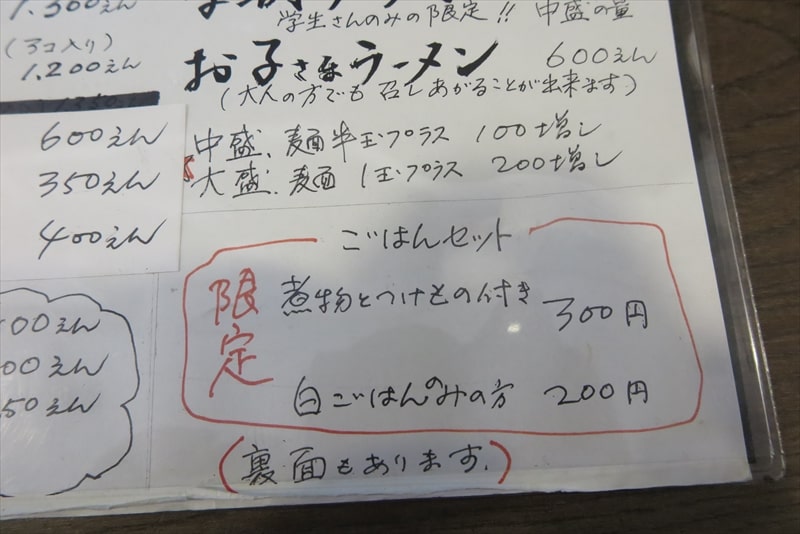 1.300えん
(3コ入り)
1.200えん
600えん
350えん
400えん
00えん
00えん
50えん
学生さんのみの限定!! 中盛の量
お子さまラーメン 600えん
(大人の方でも召しあがることが出来ます)
中盛、麺半玉プラス 100増し
大盛、麺 1玉プラス 200増し
ごはんセット
限定
煮物とつけもの付き 300円
白ごはんのみの方 200円
(裏面もあります。)